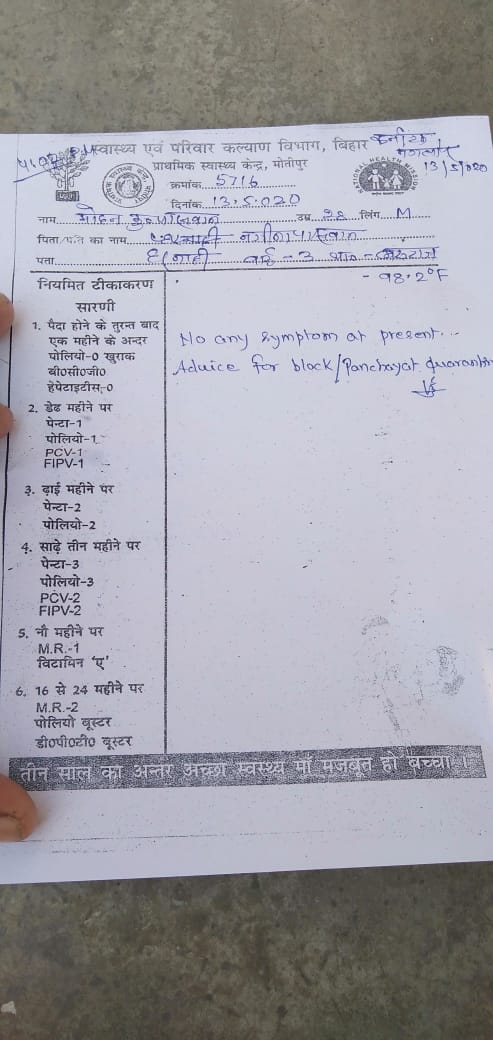 स्वास्थ्य एवं परिवार कल्याण विभाग, बिहार
प्राथमिक स्वास्थ्य केन्द्र, मोतीपुर
13/5/020
NATIONAL HEALTH MISSION
क्रमांक 5716
दिनांक 13.5.020
नाम मोहन कु० पासवान उम्र 28 लिंग M
पिता/पति का नाम नगीना पासवान
पता वार्ड-3
- 98.2°F
नियमित टीकाकरण
सारणी
1. पैदा होने के तुरन्त बाद
एक महीने के अन्दर
पोलियो-0 खुराक
बी०सी०जी०
हेपेटाइटीस-0
No any symptom at present.
Advice for block/Panchayat quarantin
2. डेढ महीने पर
पेन्टा-1
पोलियो-1
PCV-1
FIPV-1
3. ढ़ाई महीने पर
पेन्टा-2
पोलियो-2
4. साढ़े तीन महीने पर
पेन्टा-3
पोलियो-3
PCV-2
FIPV-2
5. नौ महीने पर
M.R.-1
विटामिन 'ए'
6. 16 से 24 महीने पर
M.R.-2
पोलियो बूस्टर
डी०पी०टी० बूस्टर
तीन साल का अन्तर अच्छा स्वस्थ्य माँ मजबूत हो बच्चा ।